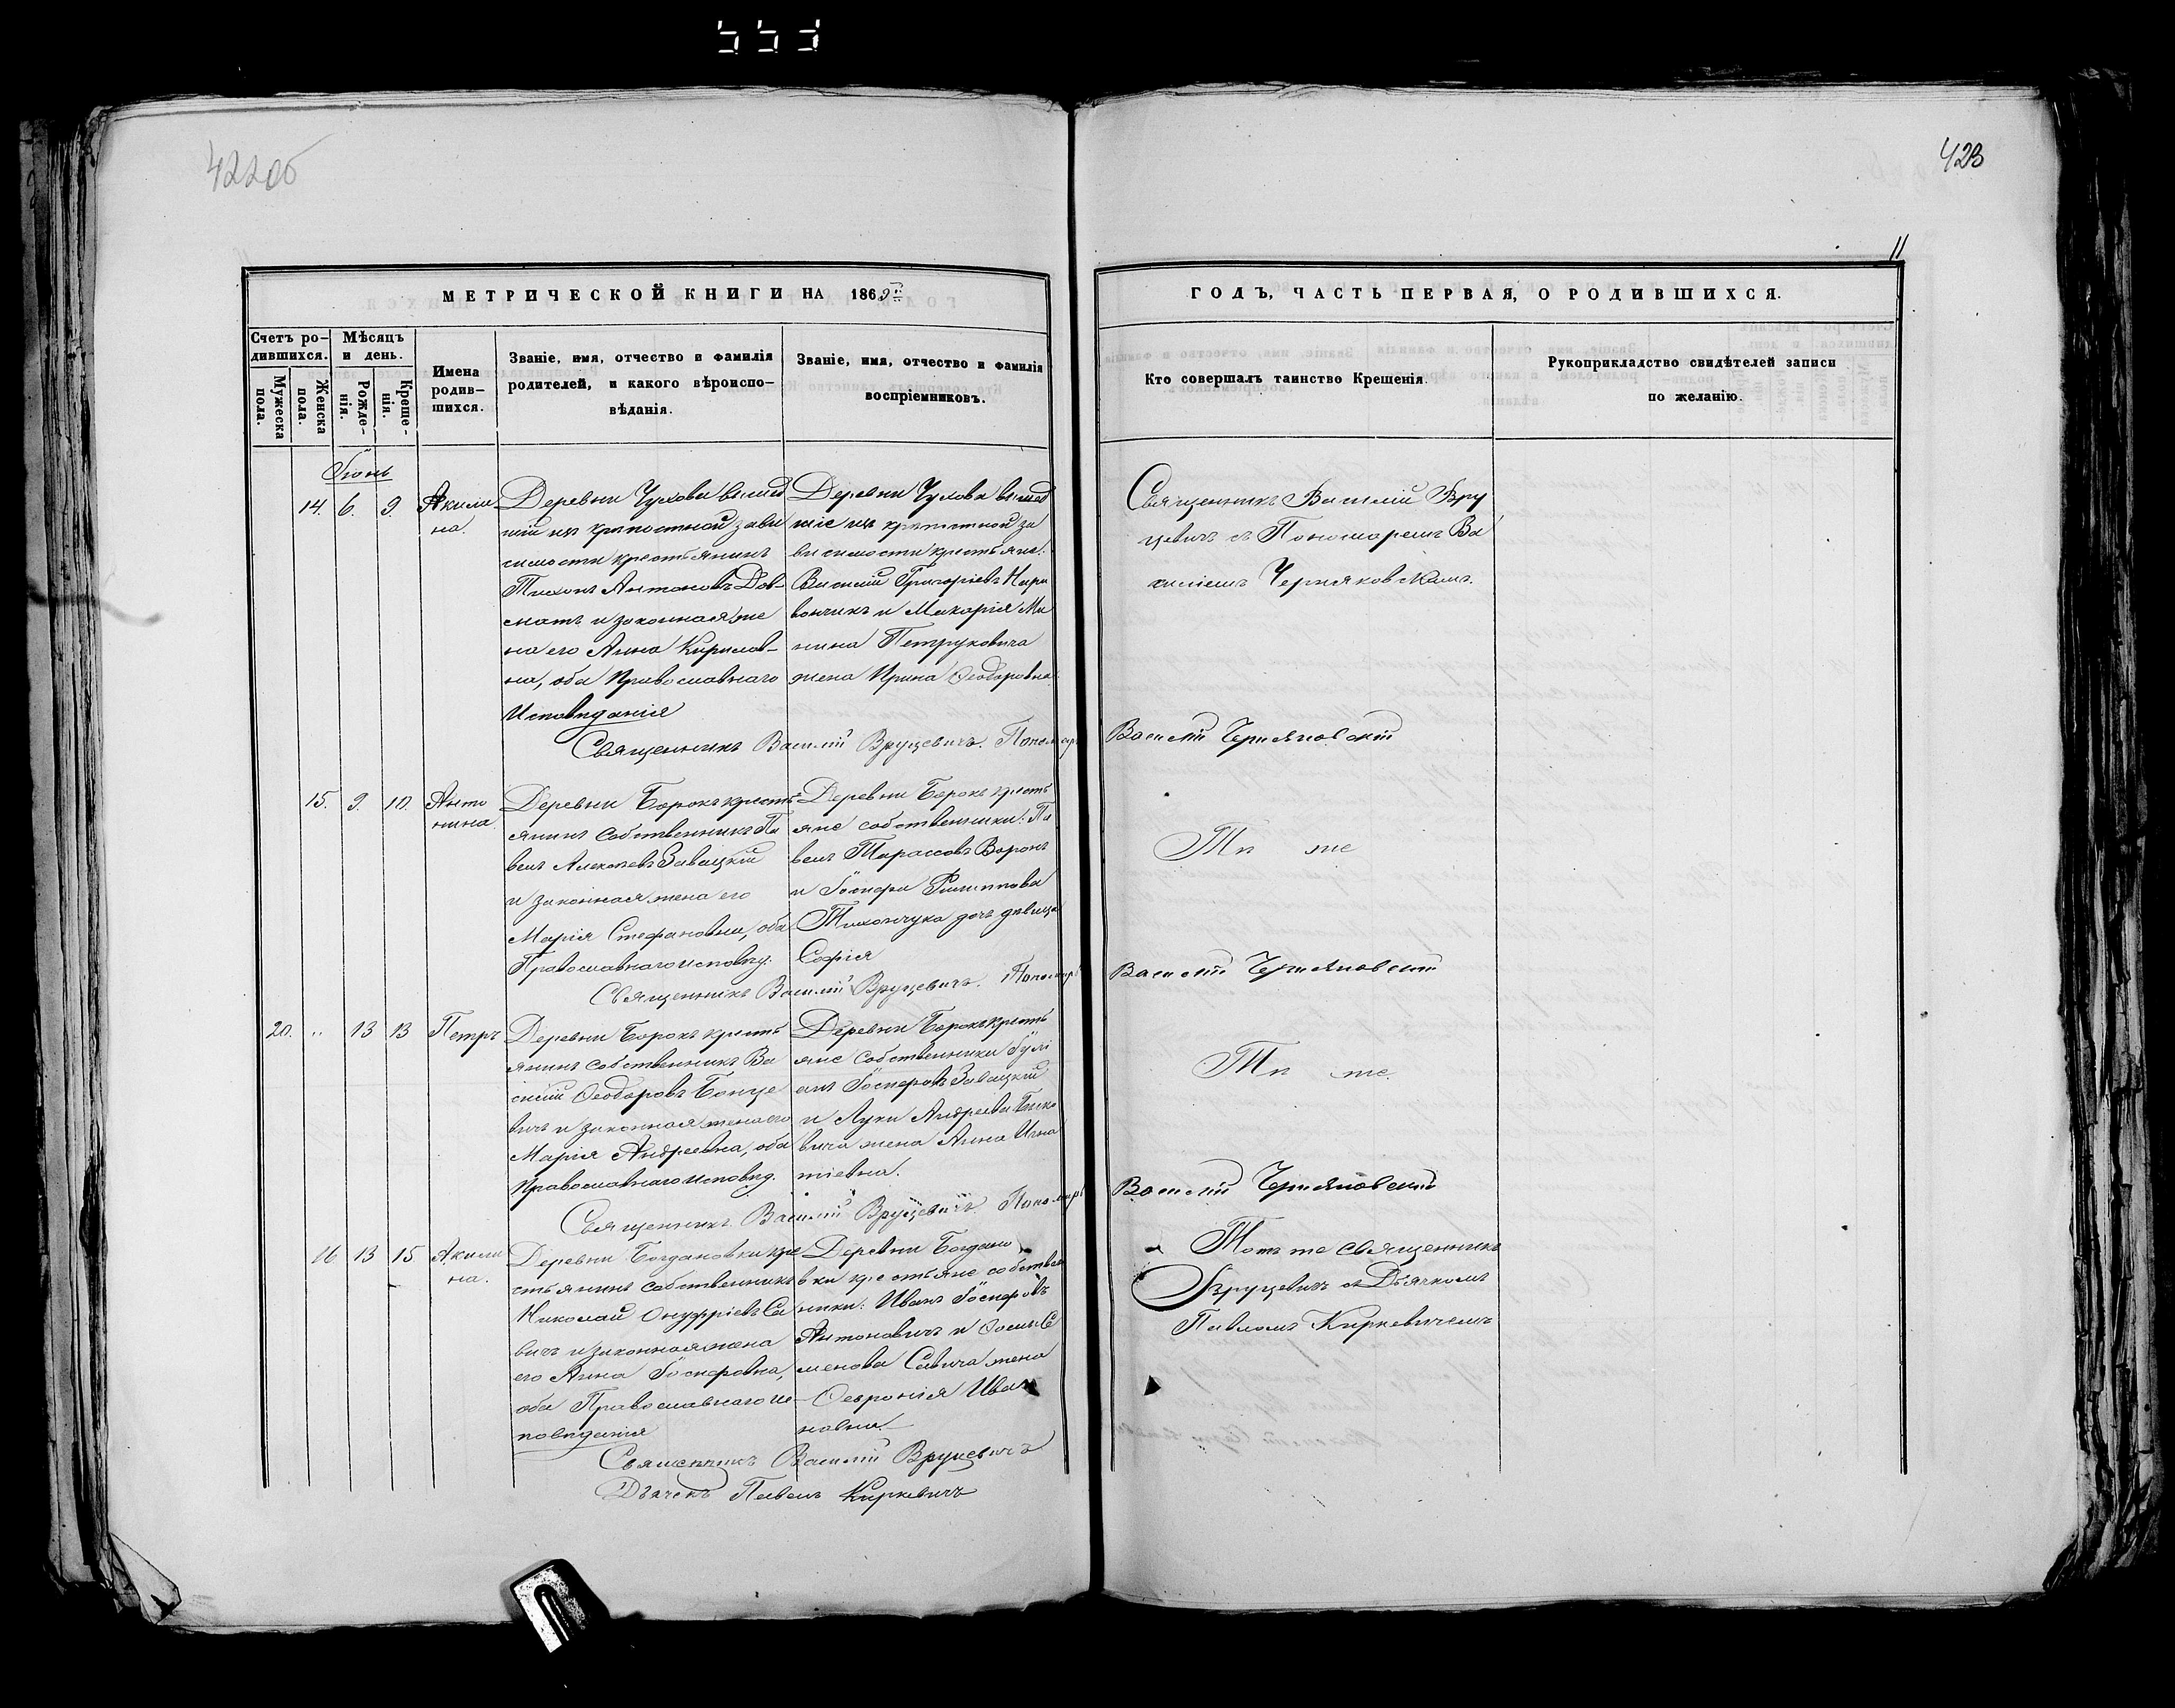 422об
423
11
МЕТРИЧЕСКОЙ КНИГИ НА 1869й
Счетъ ро-
дившихся.
Мужеска
пола.
Женска
пола.
Мѣсяцъ
и день.
Рожде-
нія.
Креще-
нія.
Имена
родив-
шихся.
Званіе, имя, отчество и фамилія
родителей, и какого вѣроиспо-
вѣданія.
Званіе, имя, отчество и фамилія
воспріемниковъ.
ГОДЪ, ЧАСТЬ ПЕРВАЯ, О РОДИВШИХСЯ.
Кто совершалъ таинство Крещенія.
Рукоприкладство свидѣтелей записи
по желанію.
Іюнь
14. 6. 9.
Акили
на.
Деревни Чухова вышед
шій изъ крѣпостной зави
симости крестьянинъ
Тихонъ Антоновъ Дов-
матъ и законная же
на его Анна Кирилов-
на, оба Православнаго
Исповѣданія
Деревни Чухова вышед
шіе изъ крѣпостной за
висимости крестьяне:
Василій Григоріевъ
вончикъ и Макарія Ми
нина Петруковича
жена Ирина Ѳеодоровна.
Священникъ Василій Вру
цевичъ съ Пономаремъ Ва
силіемъ Черняковскимъ.
Священникъ Василій Вруцевичъ. Пономарь
Василій Черняковскій
15. 9. 10.
Анто
нина
Деревни Борокъ кресть
янинъ собственникъ Па
велъ Алексѣевъ Завацкій
и законная жена его
Марія Стефановна, оба
Православнаго исповѣд.
Деревни Борокъ кресть
яне собственники: Па
велъ Тарасовъ Воронъ
и Іосифа Филиппова
Тихончука дочь дѣвица
Софія
Тѣ же
Священникъ Василій Вруцевичъ. Пономарь
Василій Черняковскій
20. „ 13 13
Петръ
Деревни Борокъ кресть
янинъ собственникъ Ва
силій Ѳеодоровъ Бонце
вичъ и законная жена его
Марія Андреевна, оба
Православнаго исповѣд.
Деревни Борокъ кресть
яне собственники Іулі
анъ Іосифовъ Завацкій
и Луки Андреева
вича жена Анна Игна
тіевна.
Тѣ же.
Священникъ Василій Вруцевичъ. Пономарь
Василій Черняковскій
16 13 15
Акили
на.
Деревни Богдановки кре
стьянинъ собственникъ
Николай Онуфріевъ Са
вичъ и законная жена
его Анна Іосифовна,
оба Православнаго ис-
повѣданія
Деревни Богдано
вки крестьяне собствен
ники: Иванъ Іосифовъ
Антоновичъ и Ѳомы Се
менова Савича жена
Ѳевронія Ива
новна
Тотъ же священникъ
Вруцевичъ съ Дьячкомъ
Павломъ Киркевичемъ
Священникъ Василій Вруцевичъ
Дьячекъ Павелъ Киркевичъ